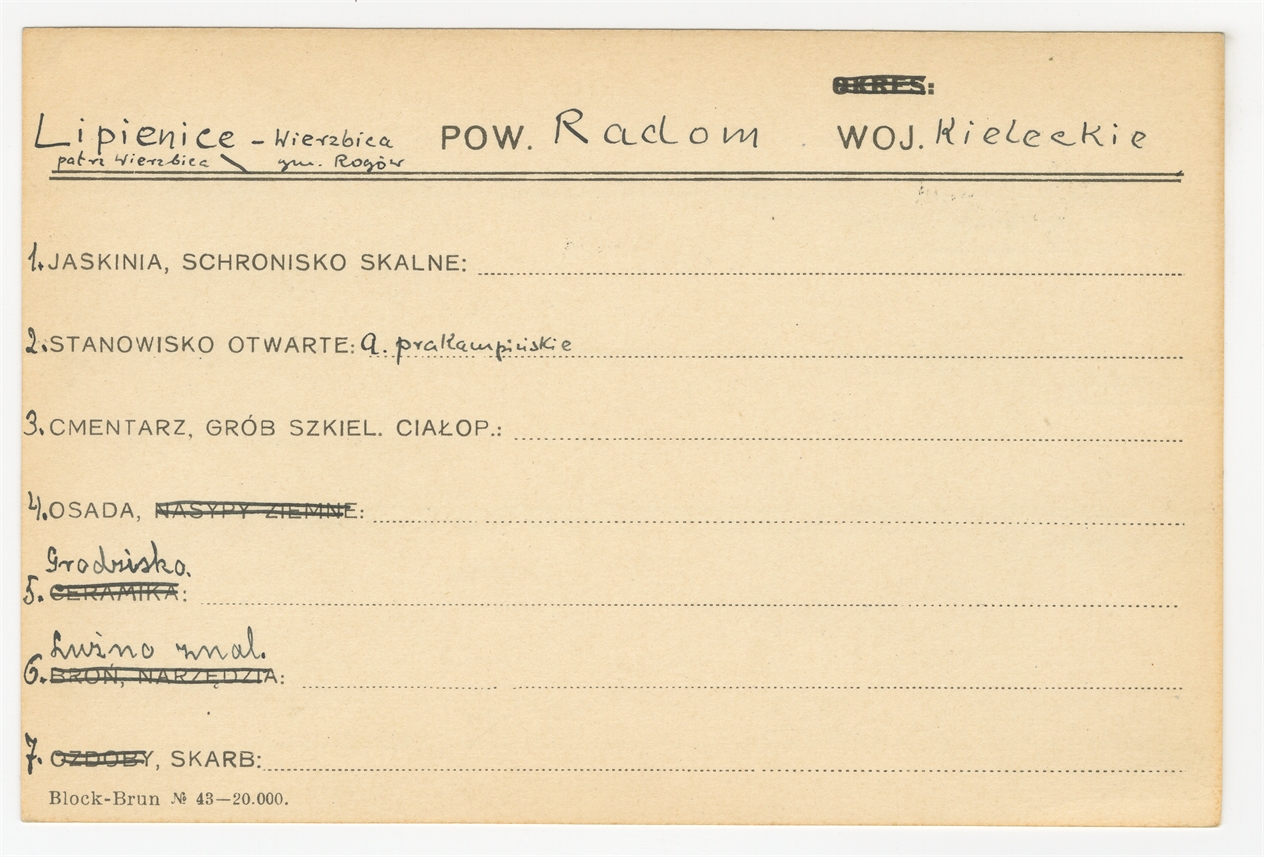 OKRES:
Lipienice - Wierzbica POW. Radom WOJ. Kieleckie
patrz Wierzbica gm. Rogów
1. JASKINIA, SCHRONISKO SKALNE:
2. STANOWISKO OTWARTE: a. prakampińskie
3. CMENTARZ, GRÓB SZKIEL. CIAŁOP.:
4. OSADA, NASYPY ZIEMNE:
Grodzisko.
5. CERAMIKA:
Luźno znal.
6. BROŃ, NARZĘDZIA:
7. OZDOBY, SKARB:
Block-Brun № 43—20.000.